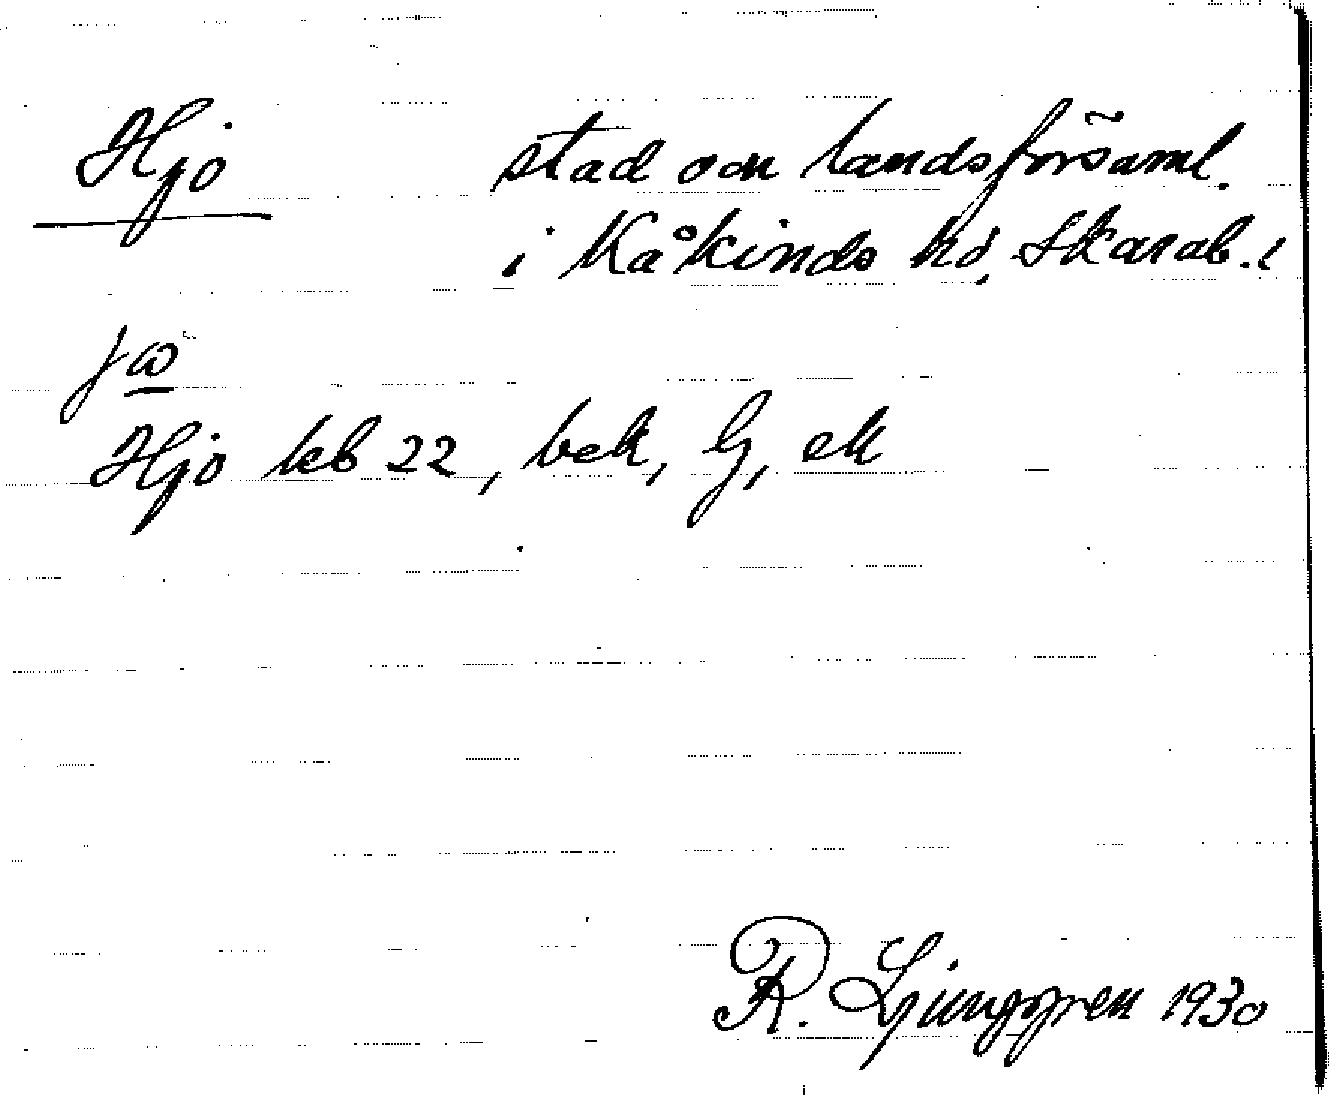 Hjo stad och landsförsaml.
i Kåkinds hd, Skarab. l
jω
Hjo leb 22, bek, G, ek
R. Ljunggren 1930